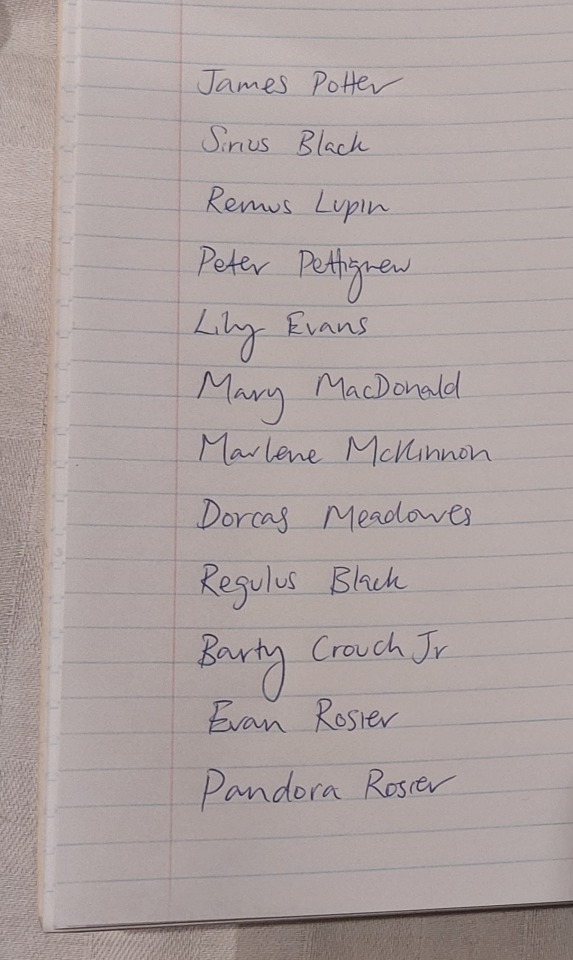 James Potter
Sirius Black
Remus Lupin
Peter Pettigrew
Lily Evans
Mary MacDonald
Marlene McKinnon
Dorcas Meadowes
Regulus Black
Barty Crouch Jr
Evan Rosier
Pandora Rosier